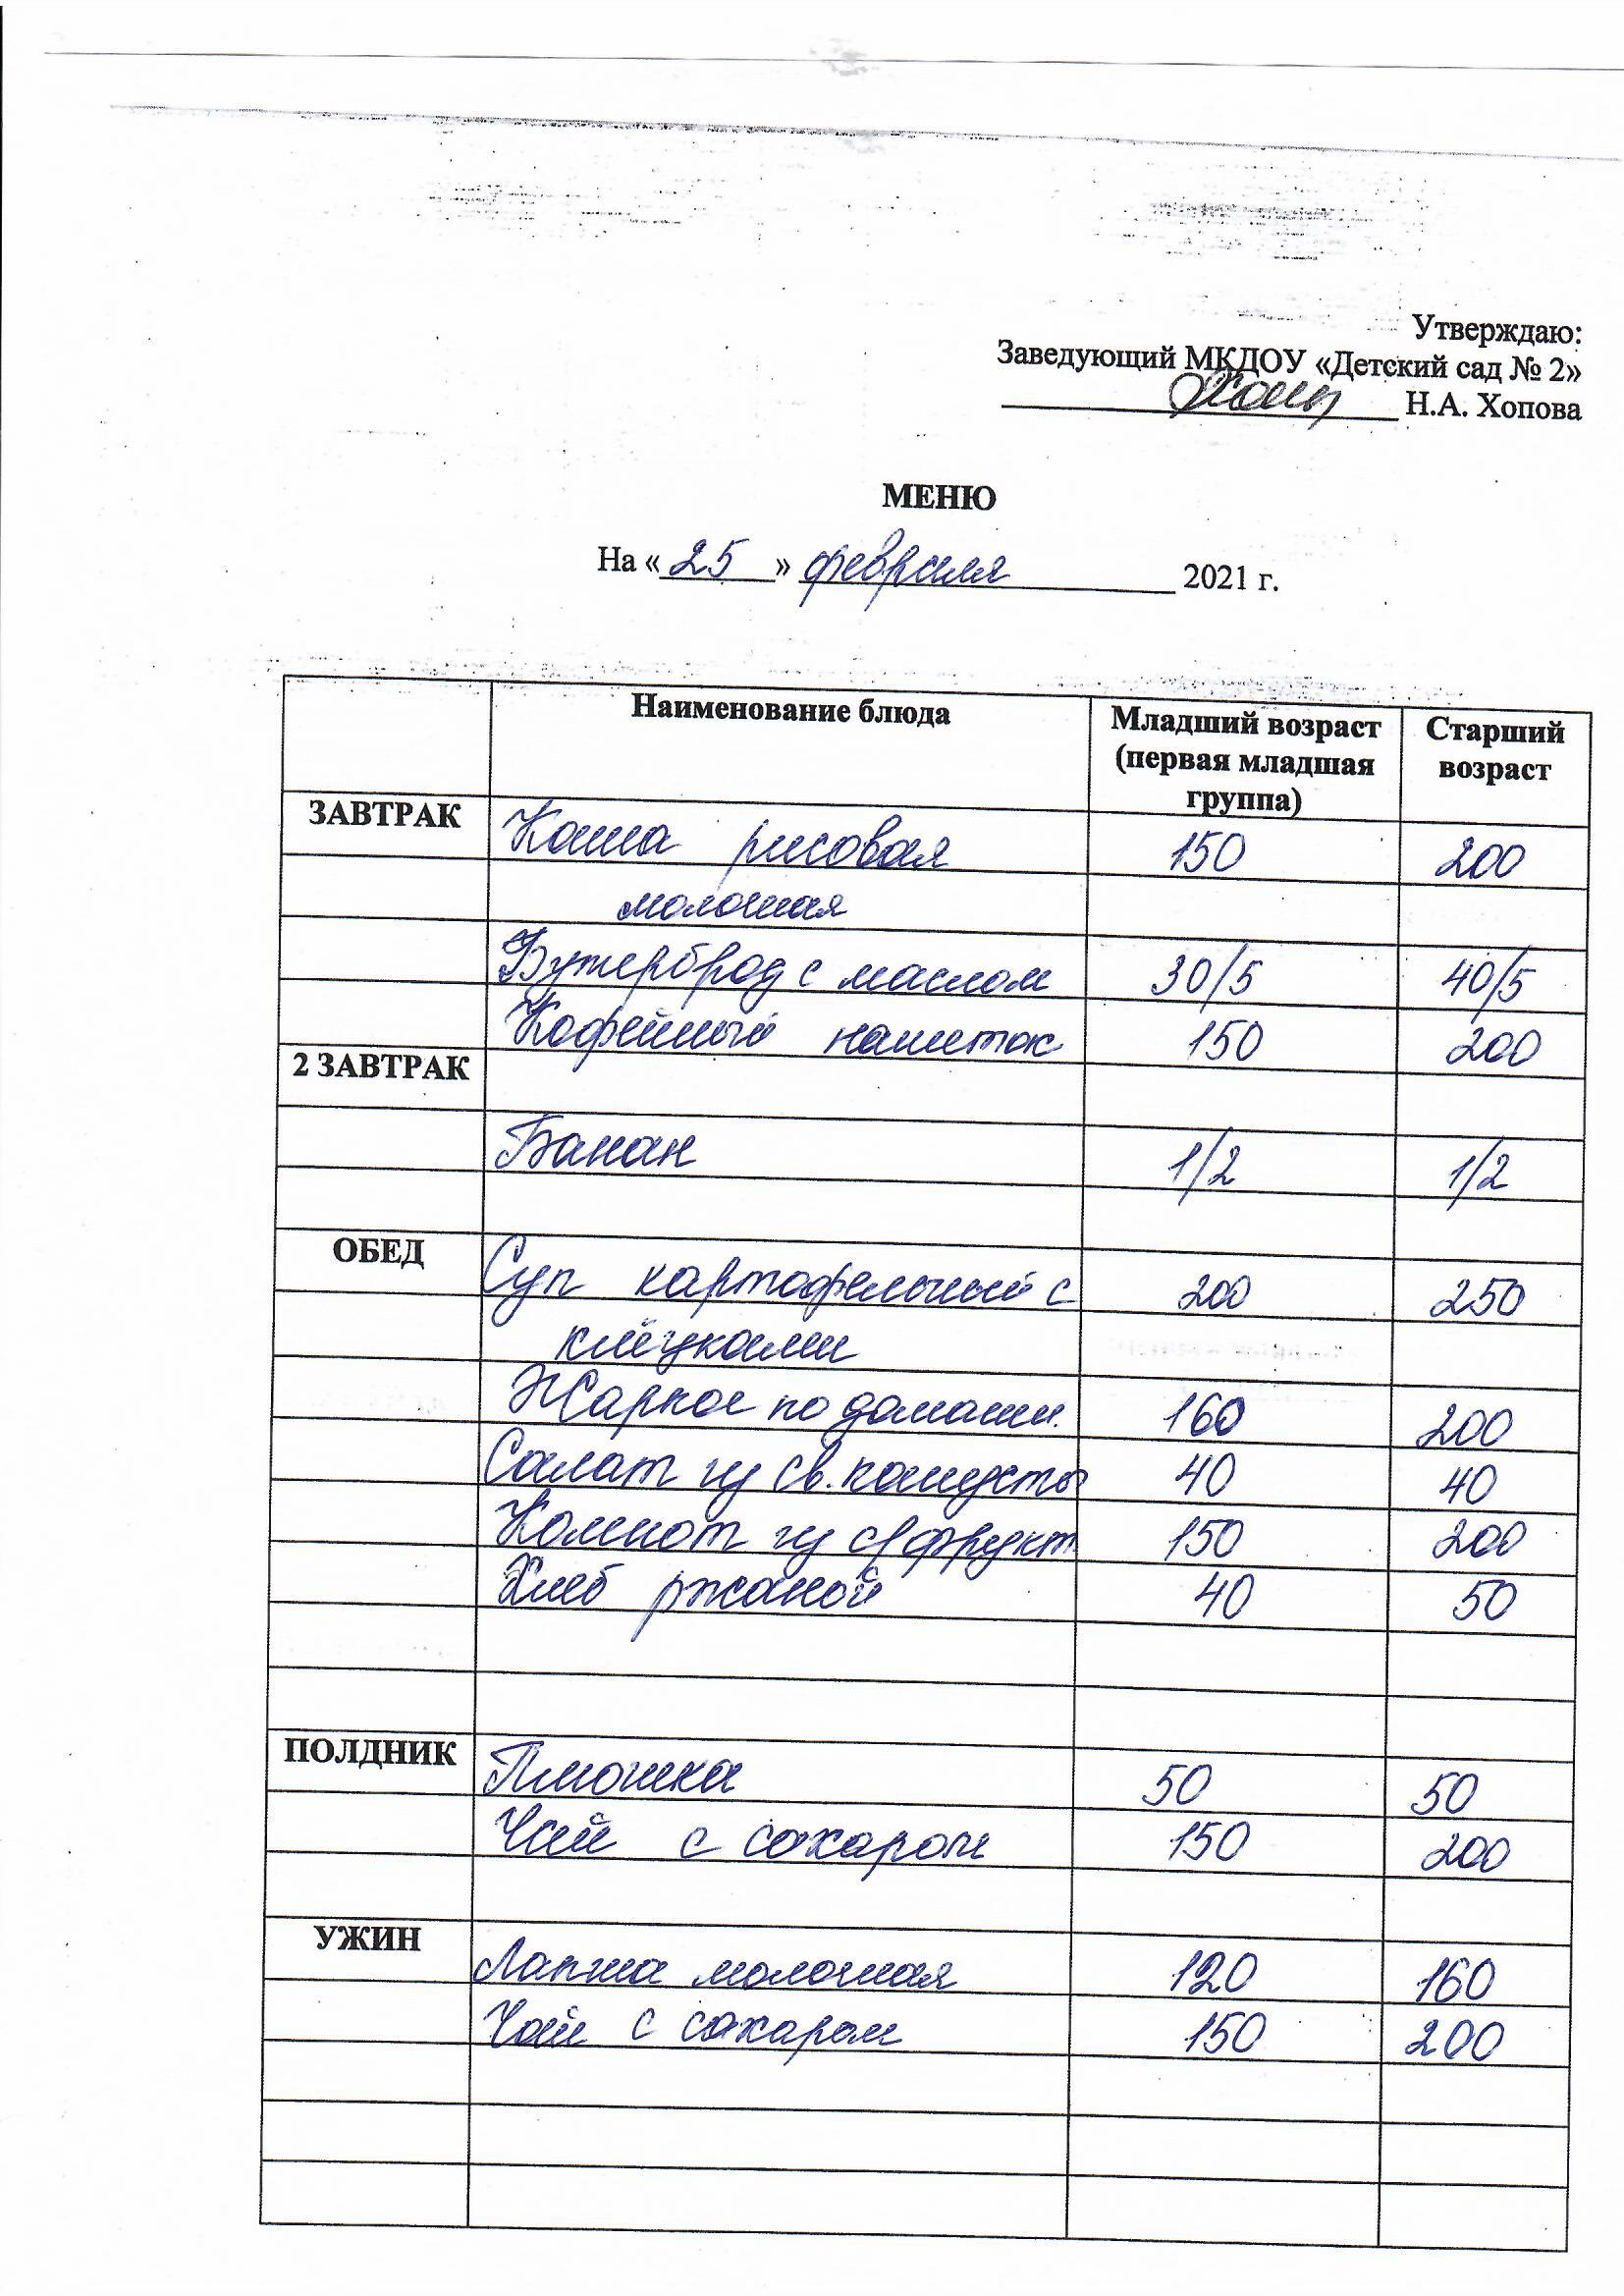 Утверждаю:
Заведующий МКДОУ «Детский сад № 2»
Н.А. Хопова
МЕНЮ
На «25» февраля 2021 г.
Наименование блюда Младший возраст (первая младшая группа) Старший возраст
ЗАВТРАК Каша рисовая 150 200
молочная
Бутерброд с маслом 30/5 40/5
Кофейный напиток 150 200
2 ЗАВТРАК
Банан 1/2 1/2
ОБЕД Суп картофельный с 200 250
клёцками
Жаркое по домашн. 160 200
Салат из св. капусты 40 40
Компот из с/фрукт 150 200
Хлеб ржаной 40 50
ПОЛДНИК Плюшка 50 50
Чай с сахаром 150 200
УЖИН Лапша молочная 120 160
Чай с сахаром 150 200